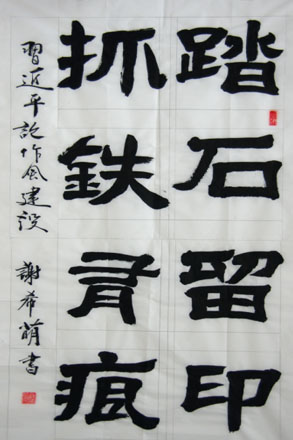 踏石留印
抓鉄有痕
習近平论作风建设
謝希萌書